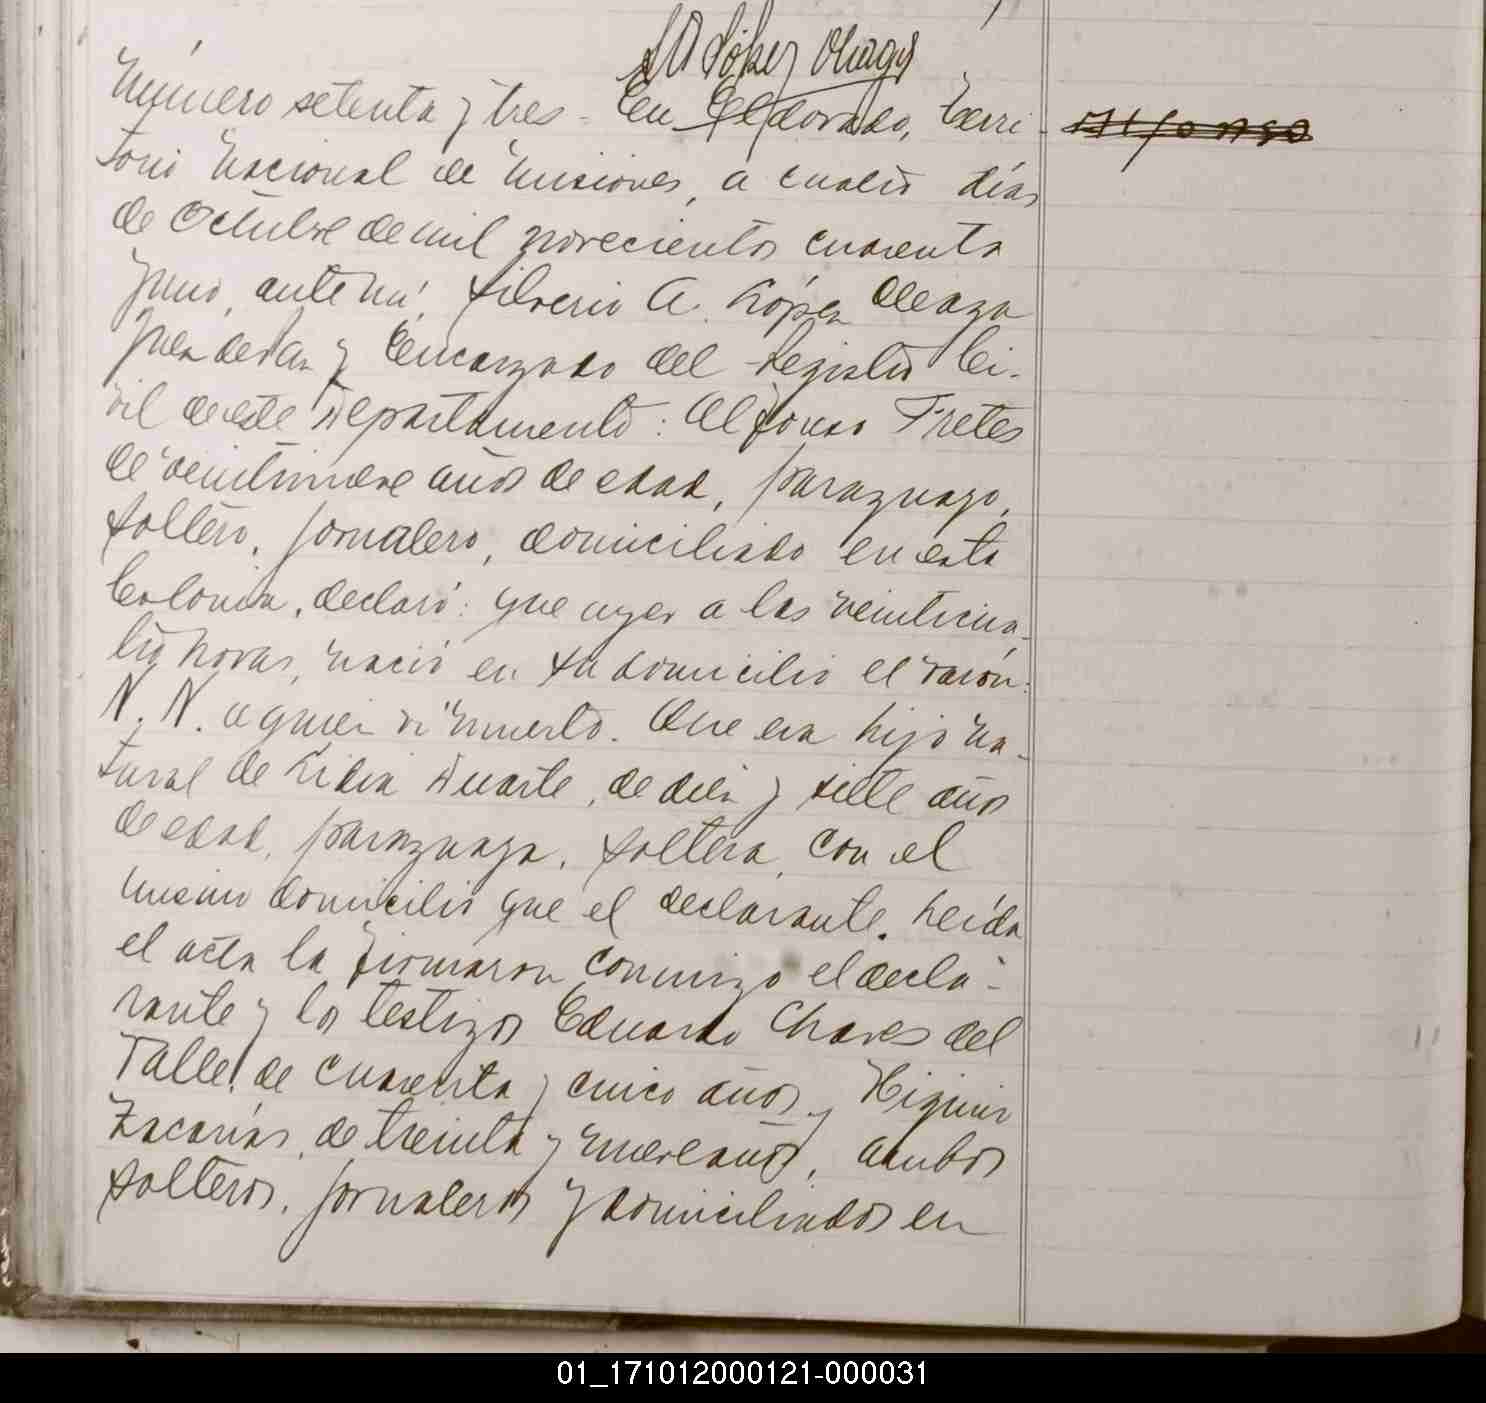 Número setenta y tres - En Eldorado, Terri-
Alfonso
torio Nacional de Misiones, a cuatro días
de Octubre de mil novecientos cuarenta
y uno, ante mí, Silverio A. López
Juez de Paz y Encargado del Registro Ci-
vil de este Departamento: Alfonso Fretes
de veintinueve años de edad, paraguayo,
soltero, jornalero, domiciliado en esta
Colonia, declaró: que ayer a las veinticua-
tro horas, nació en su domicilio el varón:
N. N. a quien vi muerto. Que era hijo na-
tural de Lidia Duarte, de diez y siete años
de edad, paraguaya, soltera, con el
mismo domicilio que el declarante. Leída
el acta la firmaron conmigo el decla-
rante y los testigos Eduardo Chaves del
Valle, de cuarenta y cinco años y Higinio
Zacarías, de treinta y nueve años, ambos
solteros, jornaleros y domiciliados en
01_171012000121-000031